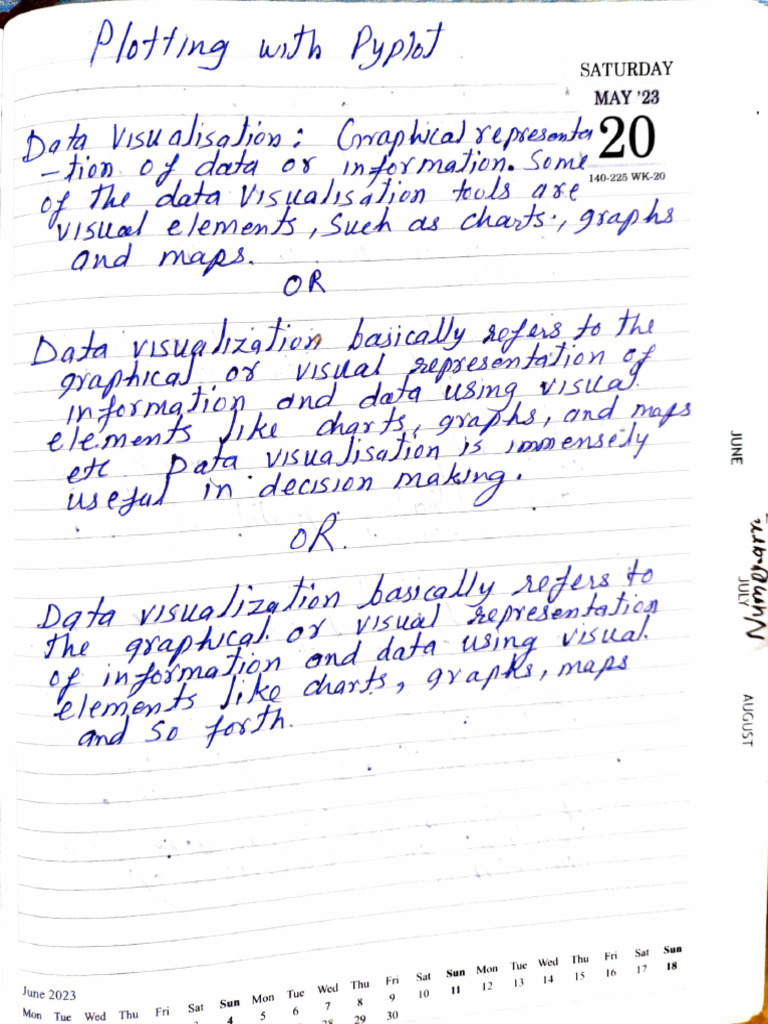 Plotting with Pyplot
SATURDAY
MAY '23
20
140-225 WK-20
Data Visualisation: Graphical representa
-tion of data or information. Some
of the data Visualisation tools are
visual elements, Such as charts, graphs
and maps.
OR
Data visualization basically refers to the
graphical or visual representation of
information and data using visual
elements like charts, graphs, and maps
etc Data visualisation is immensely
useful in decision making.
OR.
Data visualization basically refers to
the graphical or visual representation
of information and data using visual
elements like charts, graphs, maps
and so forth.
JUNE
JULY
AUGUST
June 2023
Mon Tue Wed Thu Fri Sat Sun Mon Tue Wed Thu Fri Sat Sun Mon Tue Wed Thu Fri Sat Sun
4 5 6 7 8 9 10 11 12 13 14 15 16 17 18
28 29 30